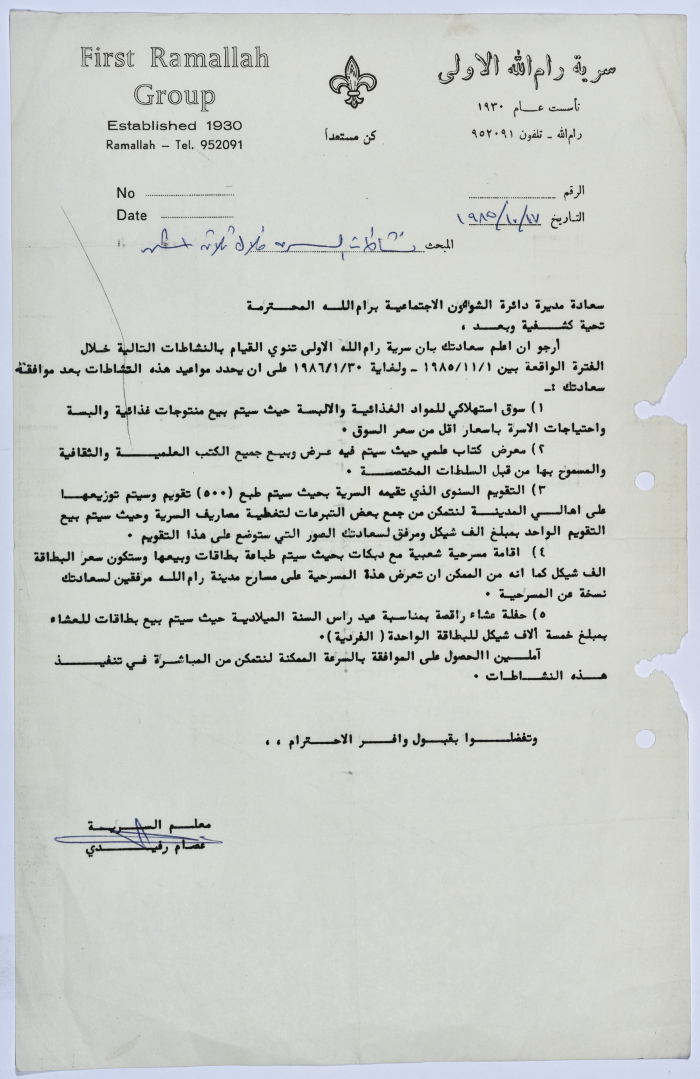 First Ramallah
Group
Established 1930
Ramallah – Tel. 952091
كن مستعداً
سرية رام الله الاولى
تأسست عــام ١٩٣٠
رام الله ـ تلفون ٩٥٢٠٩١
No
Date
الرقم
التاريخ ١٩٨٥/١٠/١٧
المبحث نشاطات السرية خلال ثلاثة اشهر
سعادة مديرة دائرة الشوءون الاجتماعية برام اللـه المحـترمة
تحية كشـفية وبعـد ،
أرجو ان اعلم سعادتك بان سرية رام الله الاولى تنوي القيام بالنشاطات التالية خلال
الفترة الواقعة بين ١٩٨٥/١١/١ ـ ولغاية ١٩٨٦/١/٣٠ على ان يحدد مواعيد هذه النشاطات بعد موافقة
سعادتك :ـ
١) سوق استهلاكي للمواد الغذائية والالبسة حيث سيتم بيع منتوجات غذائية والبسة
واحتياجات الاسرة باسعار اقل من سعر السوق ٠
٢) معرض كتاب علمي حيث سيتم فيه عرض وبيع جميع الكتب العلميـــة والثقافية
والمسموح بها من قبل السلطات المختصـــة ٠
٣) التقويم السنوى الذي تقيمه السرية بحيث سيتم طبع (٥٠٠) تقويم وسيتم توزيعهـا
على اهالـي المدينـة لنتمكن من جمع بعض التبرعات لتغطية مصاريف السرية وحيث سيتم بيع
التقويم الواحد بمبلغ الف شيكل ومرفق لسعادتك الصور التي ستوضع على هذا التقويم ٠
٤) اقامة مسرحية شعبية مع دبكات بحيث سيتم طباعة بطاقات وبيعها وستكون سعر البطاقة
الف شيكل كما انه من الممكن ان تعرض هذة المسرحية على مسارح مدينة رام اللـه مرفقين لسعادتك
نسخة عن المسرحية ٠
٥) حفلة عشاء راقصة بمناسبة عيد راس السنة الميلادية حيث سيتم بيع بطاقات للعشاء
بمبلغ خمسة ألاف شيكل للبطاقة الواحدة ( الفردية )٠
آملـين االحصول على الموافقة بالسرعة الممكنة لنتمكن من المباشرة في تنفيـذ
هـذه النشـاطـات ٠
وتفضلــوا بقبـول وافـر الاحـترام ، ،
معلـم السـريـة
عصام رفيـدي